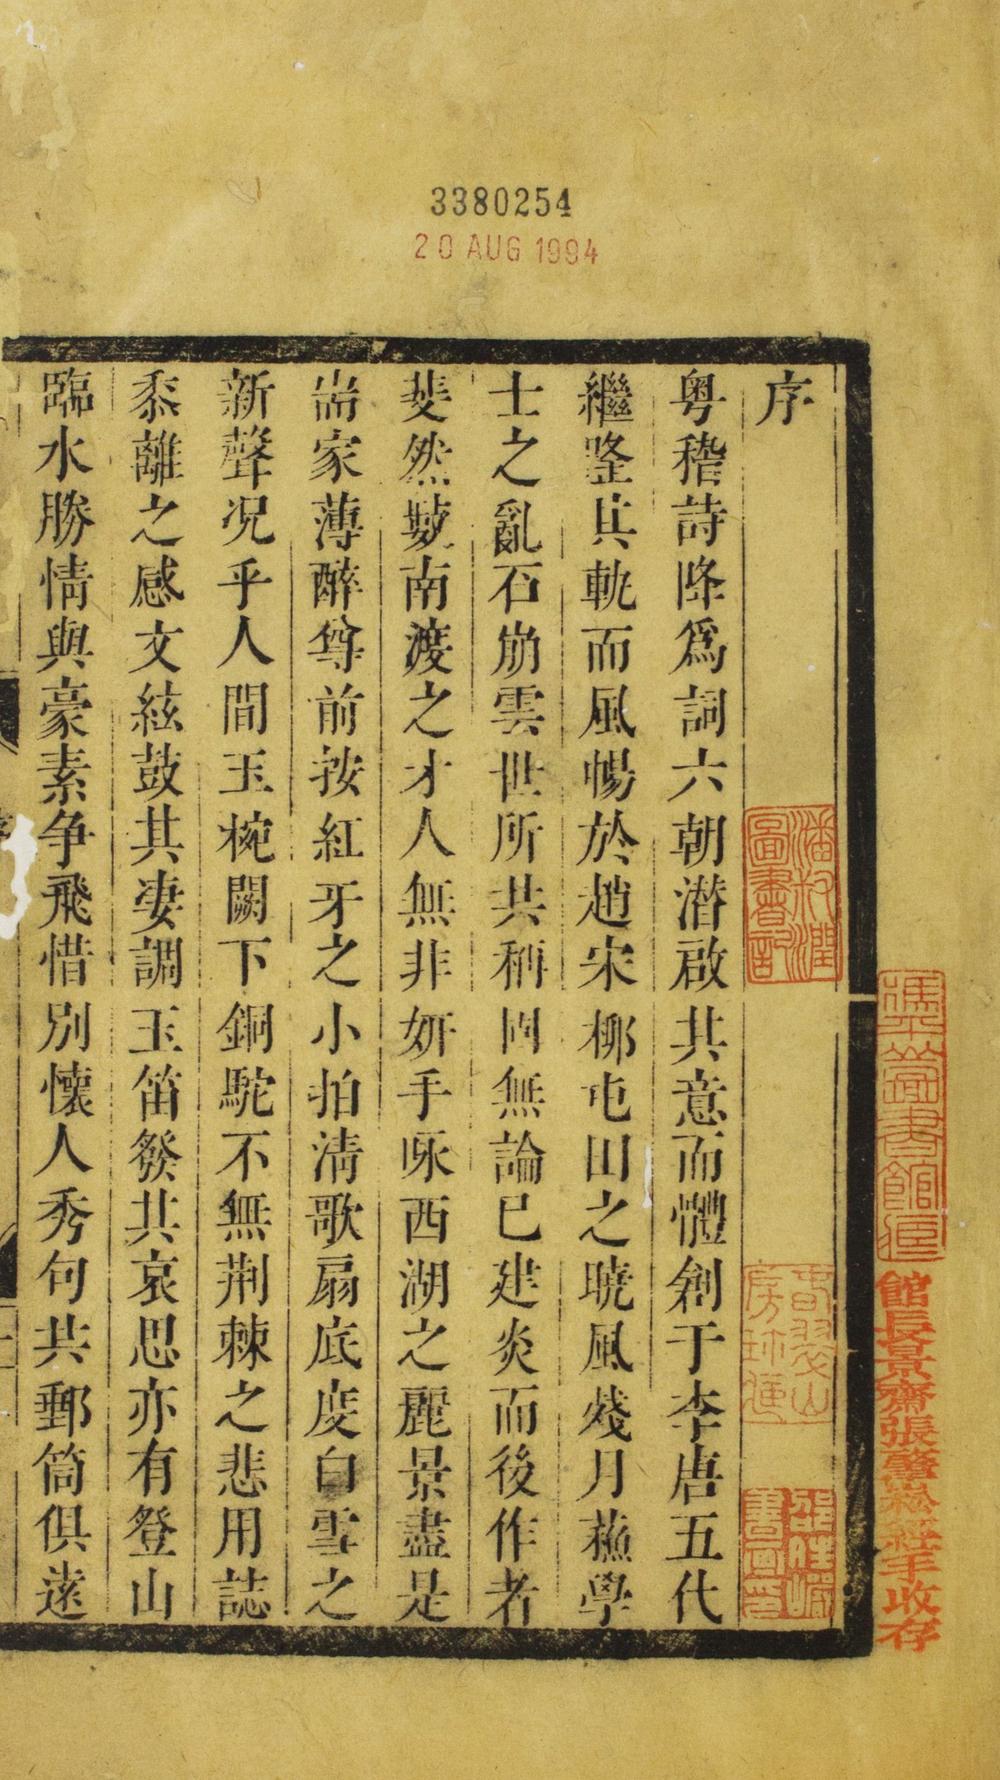 3380254
20 AUG 1994
序
粤稽詩降爲詞六朝濳啟其意而體創于李唐五代
繼隆其軌而風暢於趙宋栁屯田之曉風殘月蘇學
士之亂石崩雲世所共稱固無論已建炎而後作者
斐然數南渡之才人無非妍手詠西湖之麗景盡是
耑家薄醉尊前按紅牙之小拍清歌扇底度白雪之
新聲况乎人間玉椀闕下銅駝不無荆棘之悲用誌
黍離之感文絃鼓其凄調玉笛發其哀思亦有登山
臨水勝情與豪素争飛惜别懷人秀句共郵筒俱遠
潘叔潤圖書記
館長景齋張鑒崧經手收存